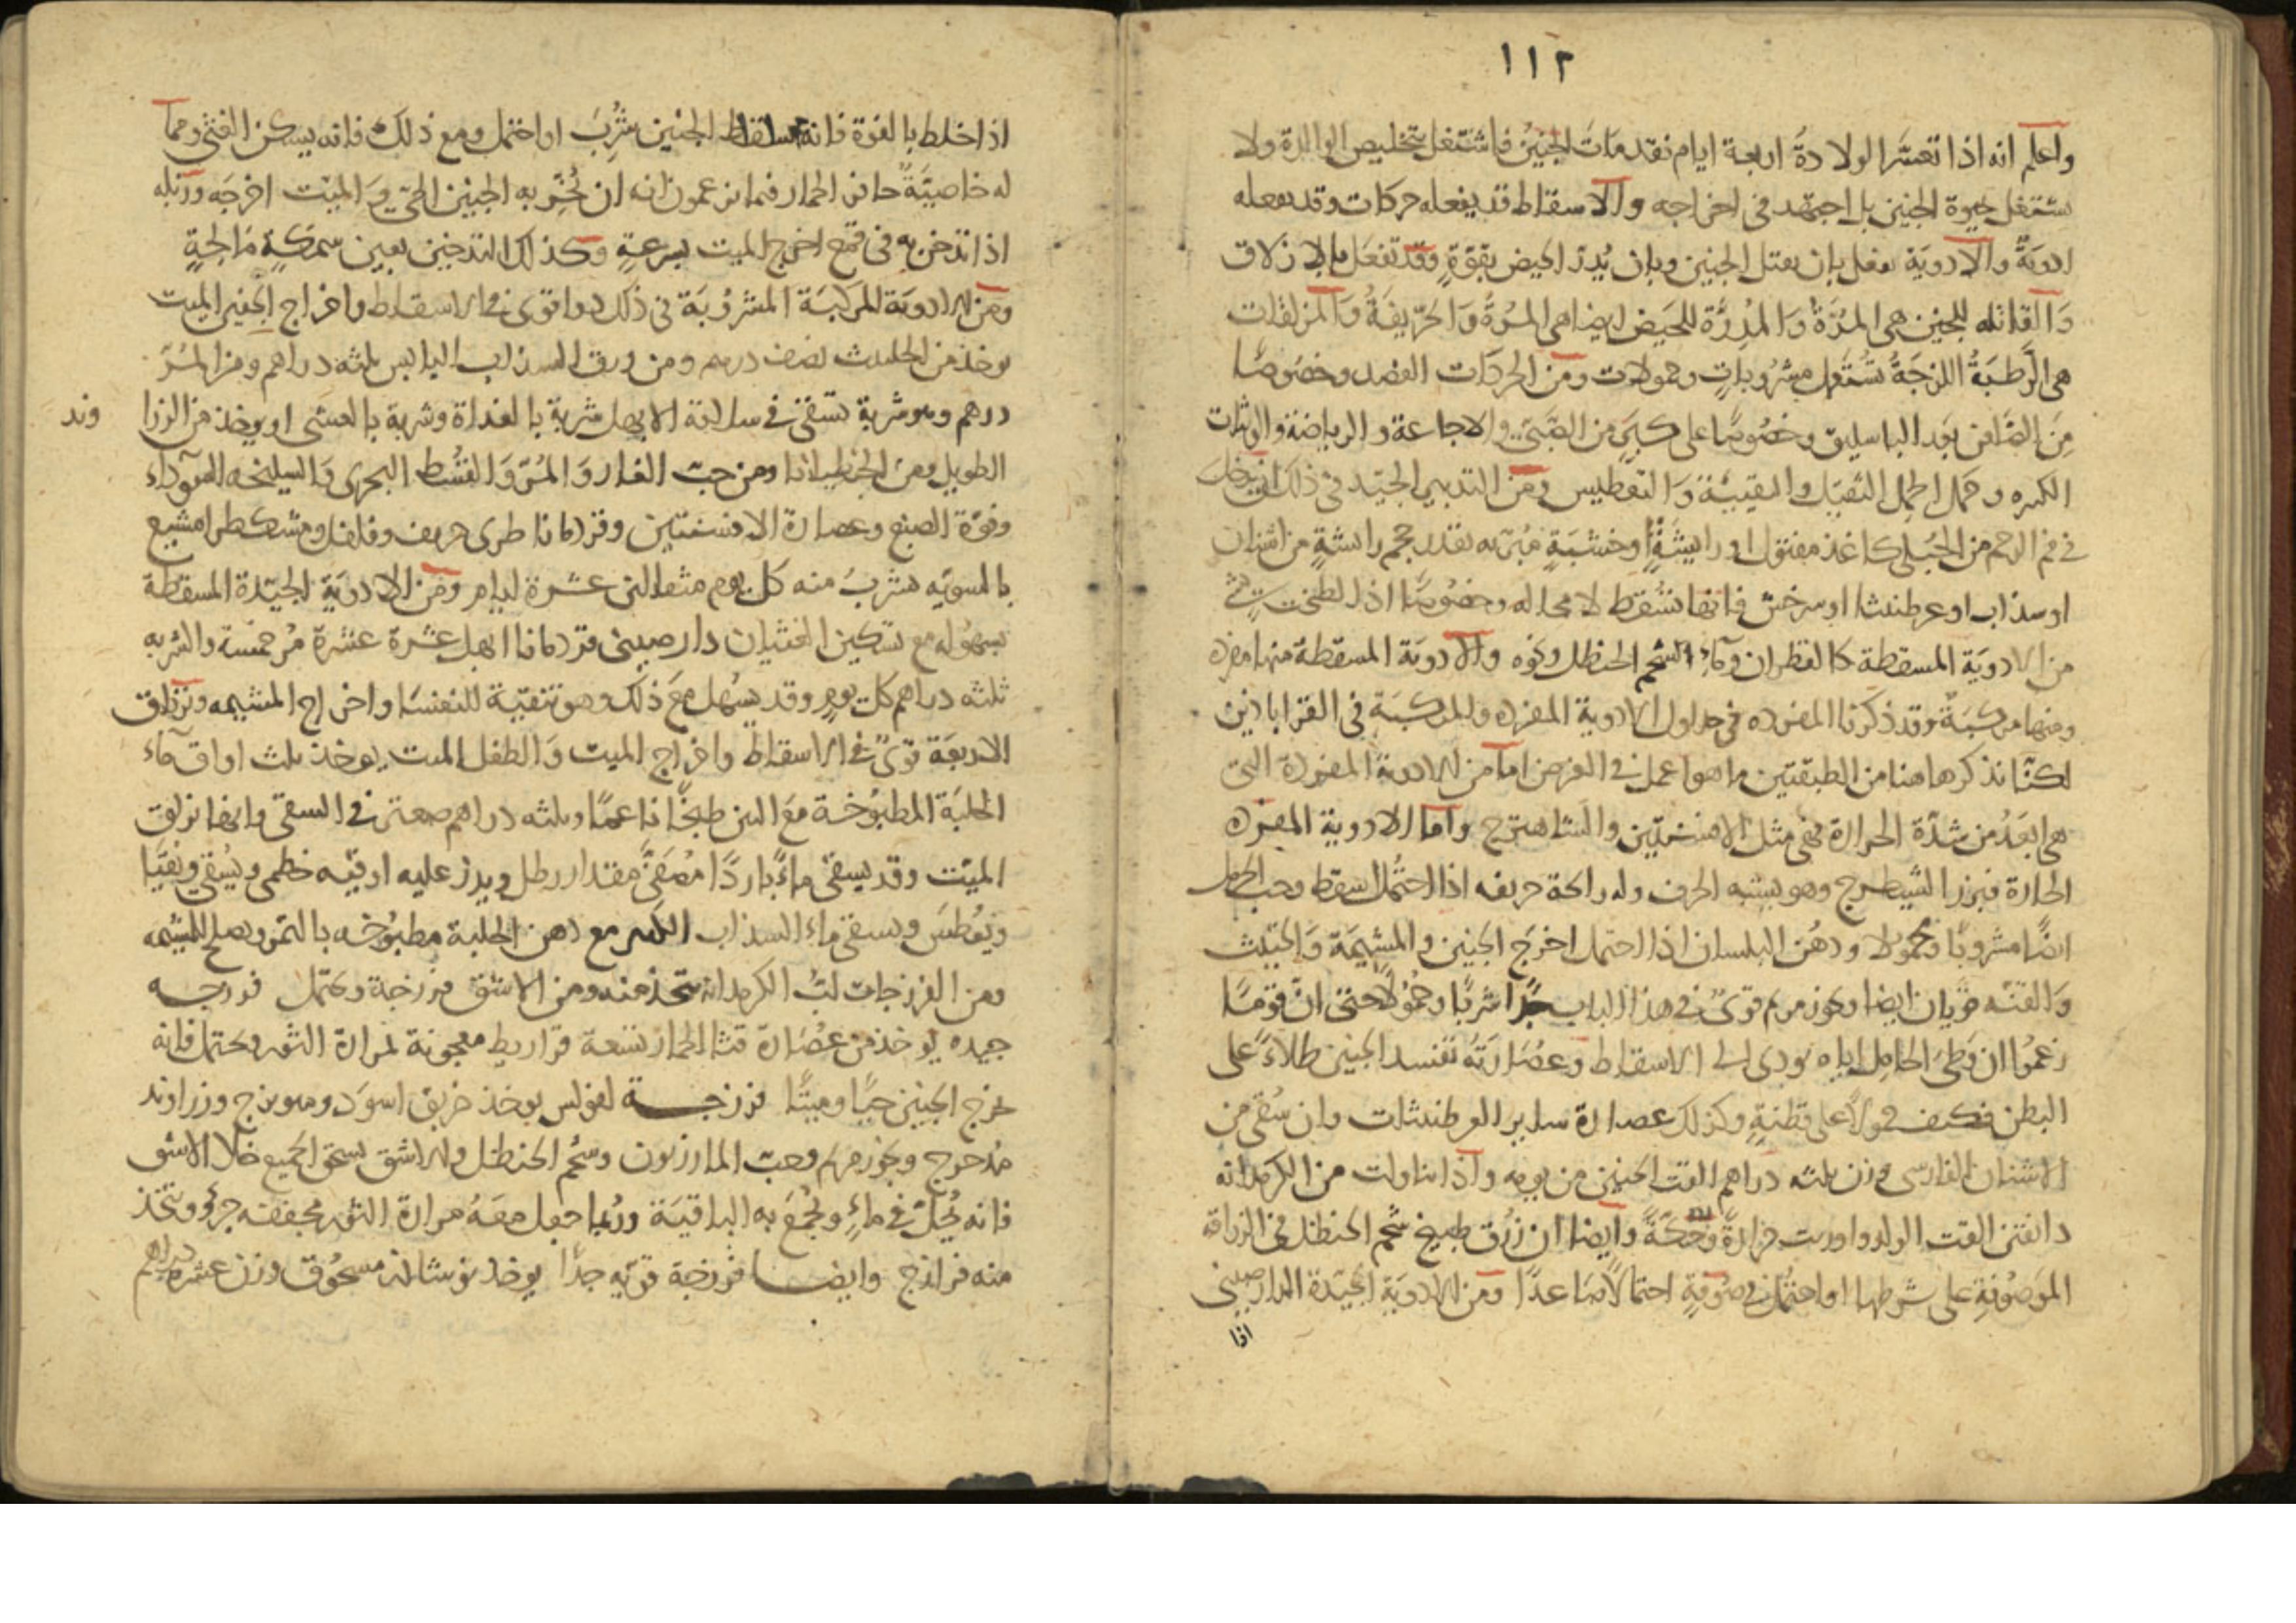 ١١٢
واعلم انه اذا تعسّر الولادة اربعة ايام فقد مات الجنين فاشتغل بتخليص الوالدة ولا
تشتغل بحيوة الجنين بل اجتهد فى اخراجه والاسقاط قد يفعله حركات وقد يفعله
ادوية والادوية تفعل بان يقتل الجنين وبان يُدرّ الحيض بقوّةٍ وقد تفعل بالازلاق
وَالقاتله للجنين هى المرّةُ وَالمُدِرّة للحيض ايضا هى المُرّةُ وَالحرّيفَةُ وَالمزلقات
هى الرَّطبَةُ اللزجَةُ تُستَعمل مشروباتٍ وحمولات ومن الحركات الفصد وخصوصًا
مِنَ الصّافن بعد الباسليق وخصُوصًا على كبَرٍ من الصَّبىّ والاجاعة والرياضة والوثبات
الكثيره وحمل الحِمل الثقيل والتقيئة وَالتعطيس ومن التدبير الجيّد فى ذلك ان يدخل
فى فم الرحم من الحُبلى كاغذ مفتول او رايشَةٍ او خشبَةٍ مَبْريّه بقدر حجم رايشةٍ من اشنان
او سذاب او عرطنيثا او سرخس فانها تسُقط لا محاله وخصُوصًا اذا لطخت بشئ
من الادوية المسقطة كالقطران وماءِ شحم الحنظل ونحوه والادوية المسقطة منها مفرده
ومنها مركبَةٌ وقد ذكرنا المفرده فى جداول الادوية المفرده والمركبَة فى القراباذين
لكنّا نذكر هاهنا من الطبقتين ما هو اعمل فى الغرض امّا من الادوية المفردة التى
هى ابعَدُ من شدّة الحرارة فهى مثل الافسنتين والشاهترج وامّا الادوية المفرده
الحارة فبزر الشيطرج وهو يشبه الحرف وله رائحة حريفه اذا احتُمل اسقط وحب الحرمل
ايضًا مشروبًا ومحمولا ودهُن البلسان اذا احتمل اخرَج الجنين والمشيمَة وَالحلتيت
وَالقنّه قويان ايضا وبخور مريم قوىّ فى هذا الباب جدًّا شربًا وحمُولًا حتى انّ قومًا
زعمُوا ان وَطئ الحامِل اياه يودى الى الاسقاط وعصُارَتُه تفسد الجنين طلاءً على
البطن فكيف حمولًا على قطنةٍ وكذلك عصارة ساير العرطنيثات وان سُقى من
الاشنان الفارسى وزن ثلثه دراهم القت الجنين من يومه واذا تناولت من الكرمدانه
دانقين القت الولد واورث حرارةً وحكّةً وايضا ان زرّق طبيخ شحم الحنظل فى الزراقه
الموصُوفةِ على شرطها او احتُمل فى صُوفةٍ احتمالًا صَاعدًا ومن الادويَة الجيّدة الدارصينى
اذا
اذا خلط بالفوة فانه يسقط الجنين شُرِبَ او احتمل ومع ذلك فانه يسكن الغثى وممّا
له خاصيّةٌ حافر الحمار فيما يزعمون انه ان بُخّر به الجنين الحىّ وَالميّت اخرجَه وزبله
اذا تدخن به فى قمع اخرج الميت بسرعةٍ وكذلك التدخين بعين سمكةٍ مَالحةٍ
ومن الادوية المركبَة المشرُوبَة فى ذلك دوا قوى فى الاسقاط واخراج الجنين الميت
يوخذ من الحلتيت نصف درهم ومن ورق السذاب اليابس ثلثه دراهم ومن المُرّ
درهم وهو شربة تسقى فى سلاقة الابهل شربة بالغداة وشربة بالعشى او يوخذ من الزرا وند
الطويل ومن الجنطيانا ومن حبّ الغار وَالمُرّ وَالقسُط البحرى وَالسليخه السّوداء
وفوّة الصبغ وعصارة الافسنتين وقردمانا طرى حريف وفلفل ومشكطرامشيع
بالسويّه يشربُ منه كل يوم مثقالين عشرة ايام ومن الادويَة الجيّدة المسقطة
بسهُوله مع تسكين الغثيان دارصينى قردمانا ابهل عشرة عشرة مُر خمسَة والشربه
ثلثه دراهم كل يومٍ وقد يسُهل معَ ذلك وهو تنقيَة للنفسَا واخراج المشيمه وترياق
الاربعَة قوىّ فى الاسقاط واخراج الميت وَالطفل الميت يوخذ ثلث اواق ماء
الحلبَة المطبُوخة مَعَ التين طبخًا ناعمًا وثلثه دراهم صعتر فى السقى وانها تزلق
الميّت وقد يسقى ماءً باردًا مُصَفىًّ مقدار رطل ويدز عليه اوقيّه خطمى ويُسقى ويُقيّا
ويُعْطسَ ويسقى ماء السذاب الكثير مع دهن الحلبة مطبُوخه بالتمر ويصلح للمشيمه
ومن الفرزجات لبُّ الكرمدانه يتخذ منه ومن الاشق فرزجة ويحتمل فرزجه
جيده يوخذ من عصَارة قثا الحمار تسعة قراريط معجونة لمرارة الثور ويحتمل فانه
يخرج الجنين حيًا وميتًا فرزجــة لفولس يوخذ خربق اسوَد وميويزج وزراوند
مدحرج وبخور مريم وحبّ المازريون وشحم الحنظل وله اشق يسحق الجميع خلا الاشق
فانه يُحلّ فى ماءٍ ويجُمَع به الباقيَة ورُبما جعل معَهُ مرارة الثور مجففه جزؤ ويتخذ
منه فرازج وايضــا فرزجة قويّه جدًّا يوخذ نوشاذر مسحُوق وزن عشره دراهم